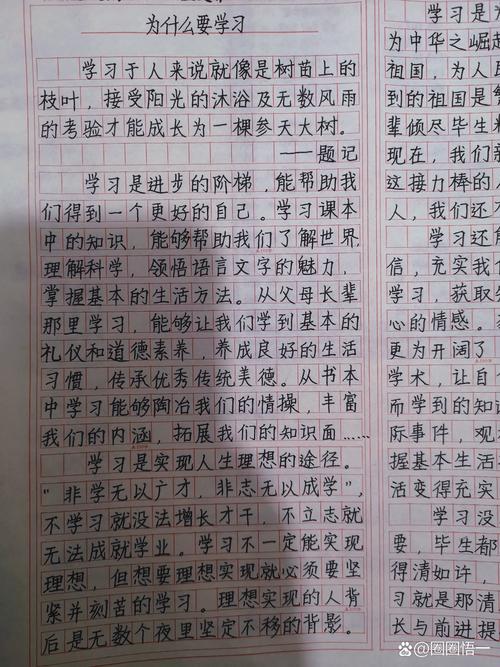 为什么要学习
学习于人来说就像是树苗上的
枝叶，接受阳光的沐浴及无数风雨
的考验才能成长为一棵参天大树。
——题记
学习是进步的阶梯，能帮助我
们得到一个更好的自己。学习课本
中的知识，能够帮助我们了解世界，
理解科学，领悟语言文字的魅力，
掌握基本的生活方法。从父母长辈
那里学习，能够让我们学到基本的
礼仪和道德素养，养成良好的生活
习惯，传承优秀传统美德。从书本
中学习能够陶冶我们的情操，丰富
我们的内涵，拓展我们的知识面……
学习是实现人生理想的途径。
“非学无以广才，非志无以成学”，
不学习就没法增长才干，不立志就
无法成就学业。学习不一定能实现
理想，但想要理想实现就必须要坚
紧并刻苦的学习。理想实现的人背
后是无数个夜里坚定不移的背影。
学习是
为中华之崛起
祖国，为人民
到的祖国是
辈倾尽毕生
现在，我们
这接力棒的
人，我们还
学习还能
信，充实我们
学习，获取
心的情感。
更为开阔了
学术，让自
而学到的知识
际事件，观
握基本生活
活变得充实
学习没
要，毕生都
得清如许，
习就是那清
长与前进
@圈圈悟一